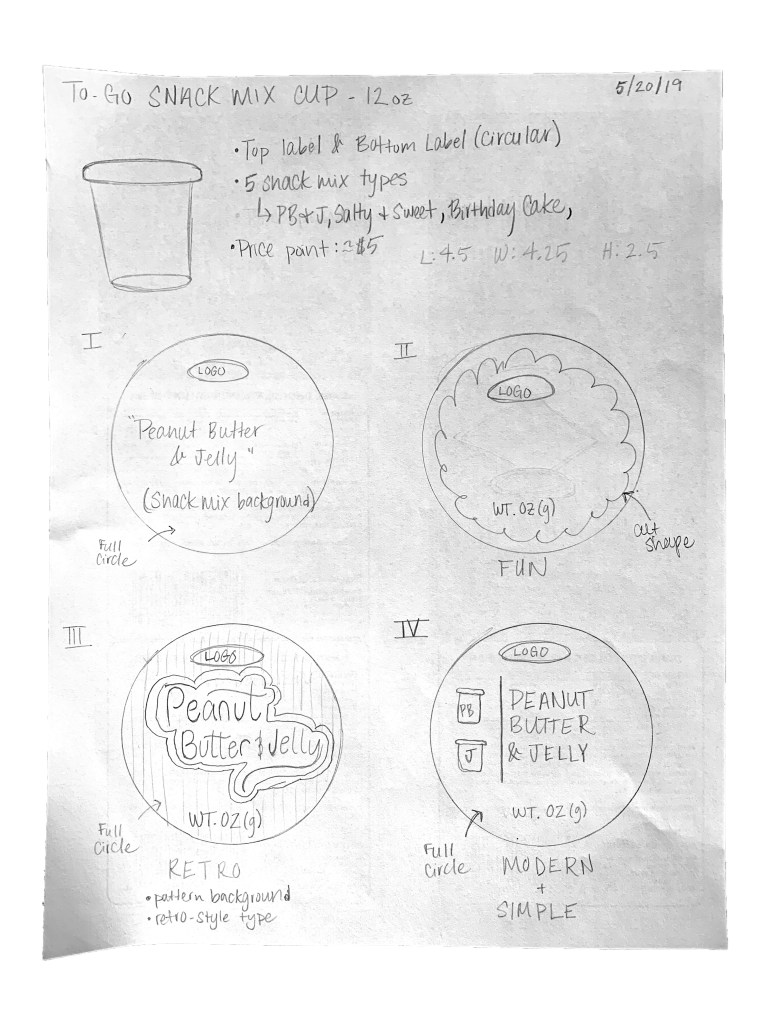 TO-GO SNACK MIX CUP - 12oz
5/20/19
• Top label & Bottom Label (circular)
• 5 snack mix types
↳ PB & J, Salty + Sweet, Birthday Cake,
• Price point: ≈$5
L: 4.5 W: 4.25 H: 2.5
I
LOGO
"Peanut Butter
& Jelly"
(Snack mix background)
Full
circle
II
LOGO
WT. OZ (g)
cut
shape
FUN
III
LOGO
Peanut
Butter & Jelly
WT. OZ (g)
Full
circle
RETRO
• pattern background
• retro-style type
IV
LOGO
PB
J
PEANUT
BUTTER
& JELLY
WT. OZ (g)
Full
circle
MODERN
+
SIMPLE